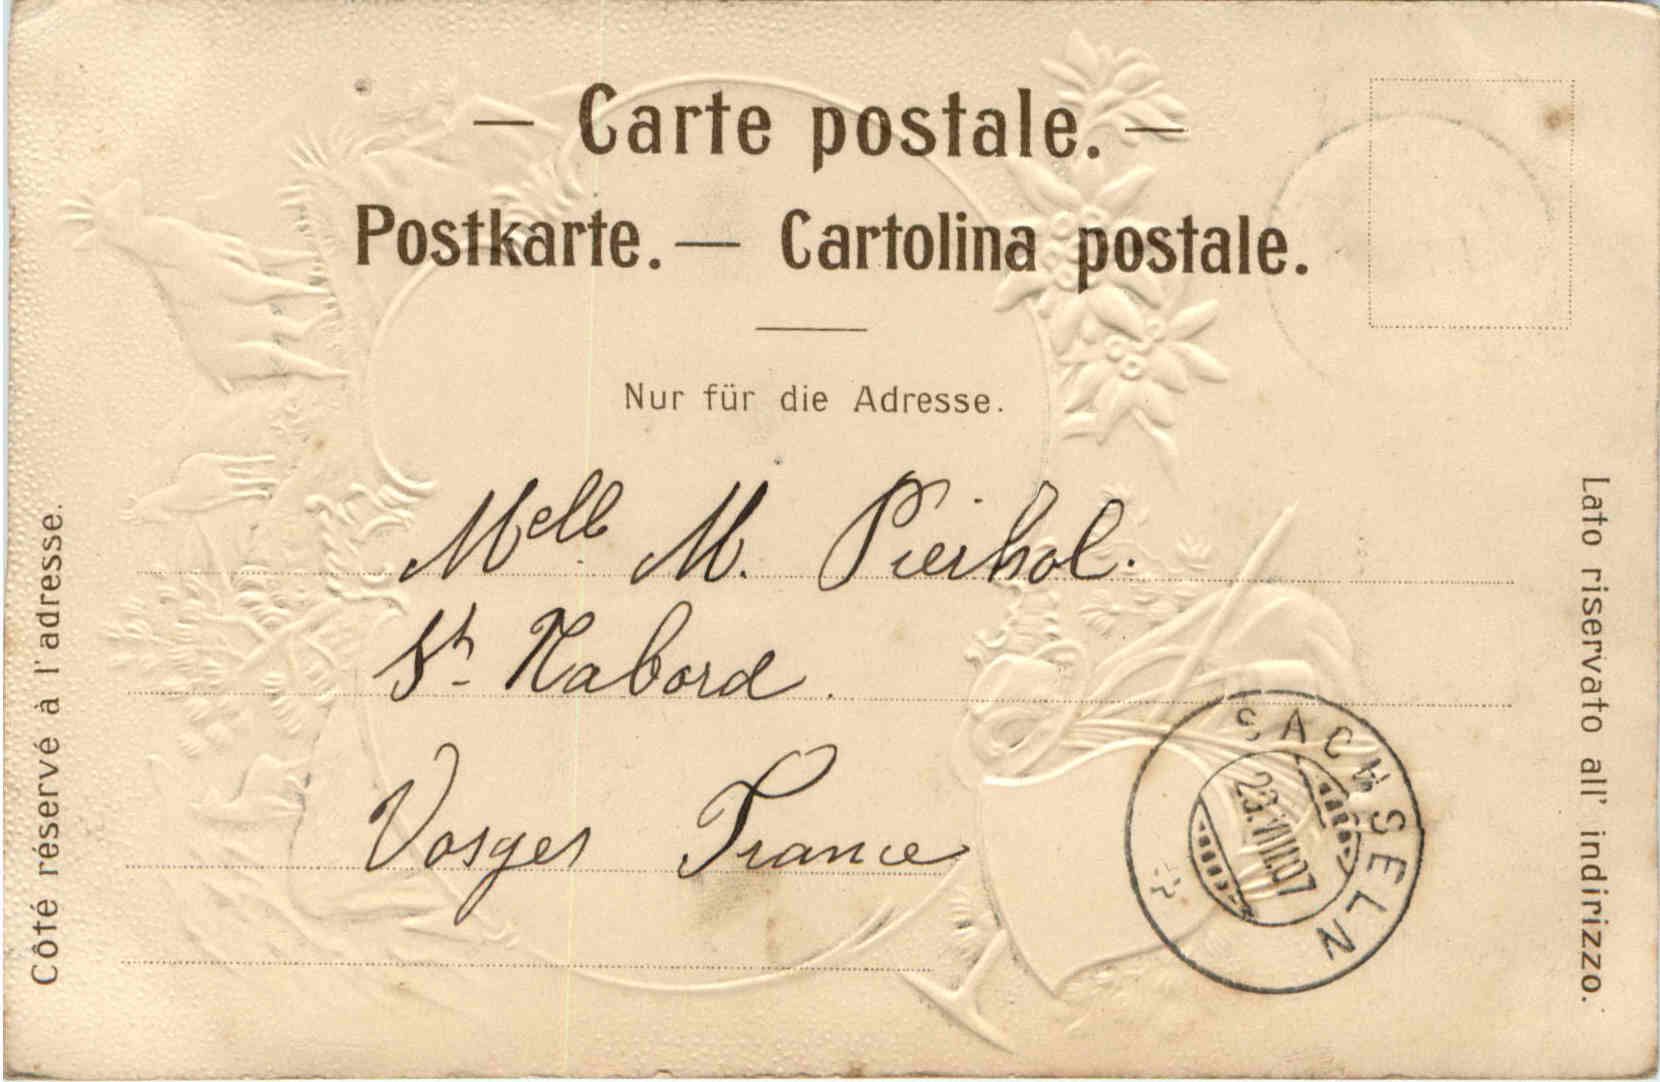 — Carte postale. —
Postkarte. — Cartolina postale.
Nur für die Adresse.
Mell. M. Pierhol.
St- Nabord.
Vosges France
Côté réservé à l'adresse.
Lato riservato all' indirizzo.
SACHSELN
23.VIII.07